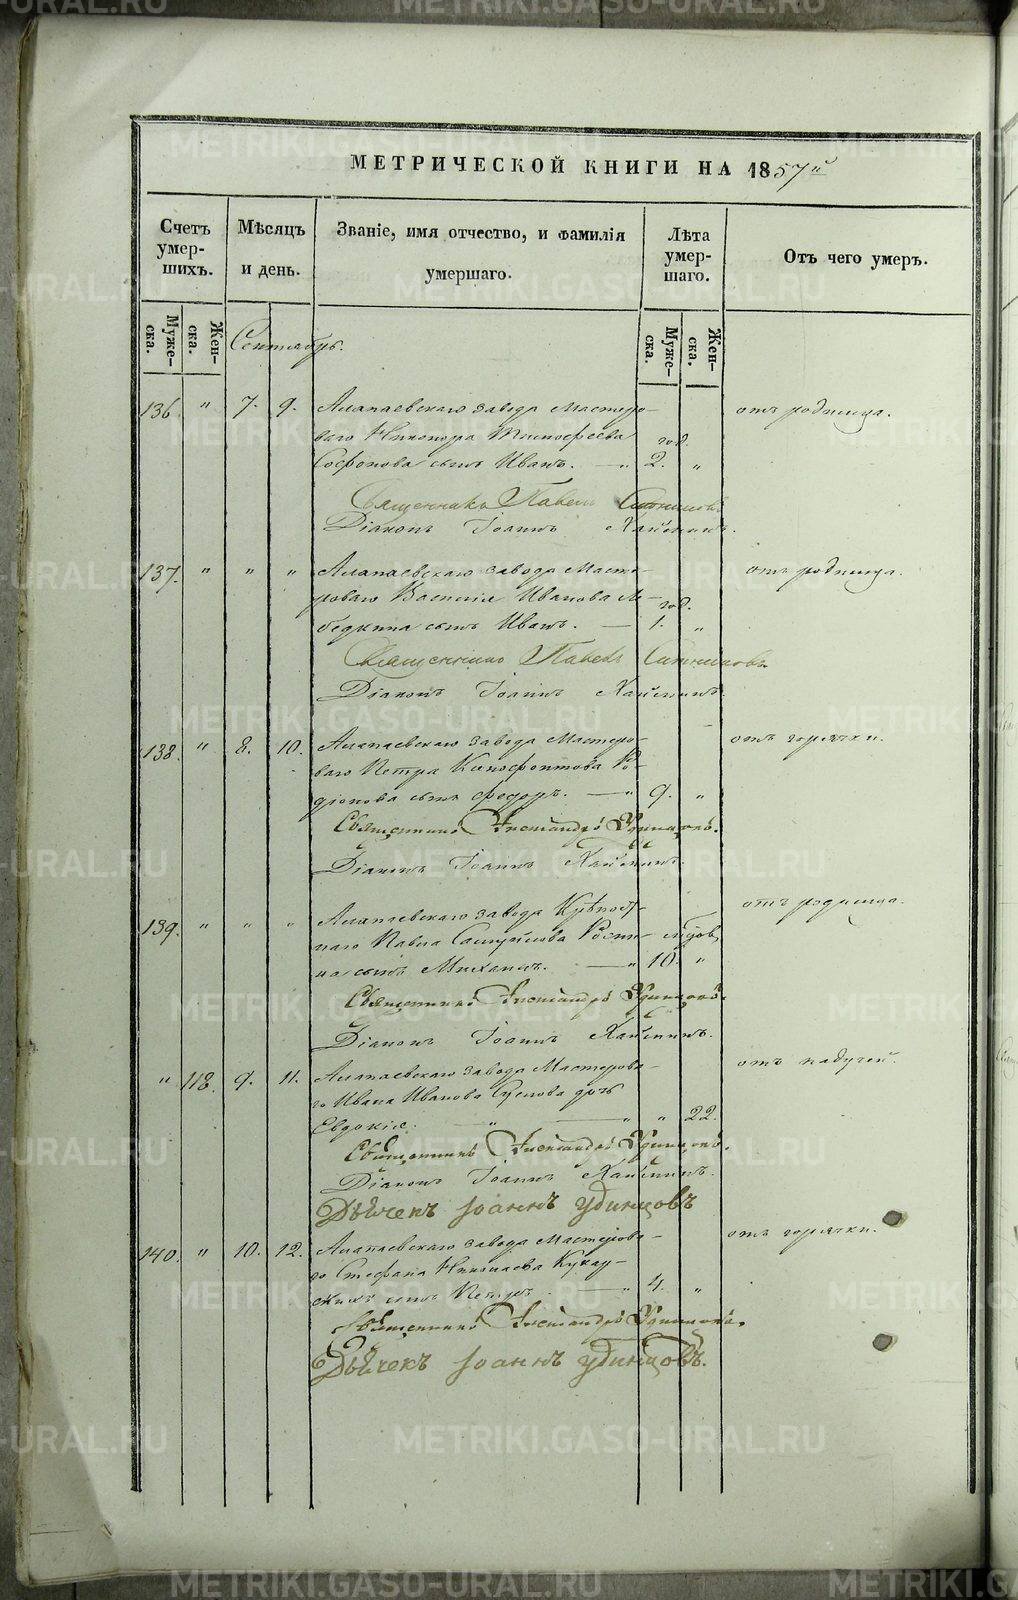 МЕТРИЧЕСКОЙ КНИГИ НА 1857й
Счетъ умер-шихъ.
Мѣсяцъ и день.
Званіе, имя отчество, и фамилія умершаго.
Лѣта умер-шаго.
Отъ чего умеръ.
Муже-ска.
Жен-ска.
Муже-ска.
Жен-ска.
Сентябрь.
136. " 7. 9. Алапаевскаго завода Мастеро- отъ родимца.
ваго Никонора Тимофеева год.
Софонова сынъ Иванъ. — " 2. "
Священникъ Павелъ
Діаконъ Іоаннъ
137. " " " Алапаевскаго завода Масте- отъ родимца.
роваго Василія Иванова Ле- год.
бедкина сынъ Иванъ. — 1. "
Священникъ Павелъ
Діаконъ Іоаннъ
138. " 8. 10. Алапаевскаго завода Мастеро- отъ горячки.
ваго Петра Ксенофонтова Ро-
діонова сынъ Федоръ. — " 9. "
Священникъ Александръ Удинцовъ.
Діаконъ Іоаннъ
139. " " " Алапаевскаго завода Крѣпост- отъ родимца.
наго Павла Самуйлова
на сынъ Михаилъ. — " 10. "
Священникъ Александръ Удинцовъ.
Діаконъ Іоаннъ
" 118. 9. 11. Алапаевскаго завода Мастерова- отъ падучей.
го Ивана Иванова Суслова дочь
Евдокія. " — " " 22.
Священникъ Александръ Удинцовъ.
Діаконъ Іоаннъ
Дьячекъ Іоаннъ Удинцовъ
140. " 10. 12. Алапаевскаго завода Мастерова- отъ горячки.
го Стефана Николаева Кукар-
скихъ сынъ Петръ — " 4. "
Священникъ Александръ Удинцовъ.
Дьячекъ Іоаннъ Удинцовъ.
METRIKI.GASO-URAL.RU